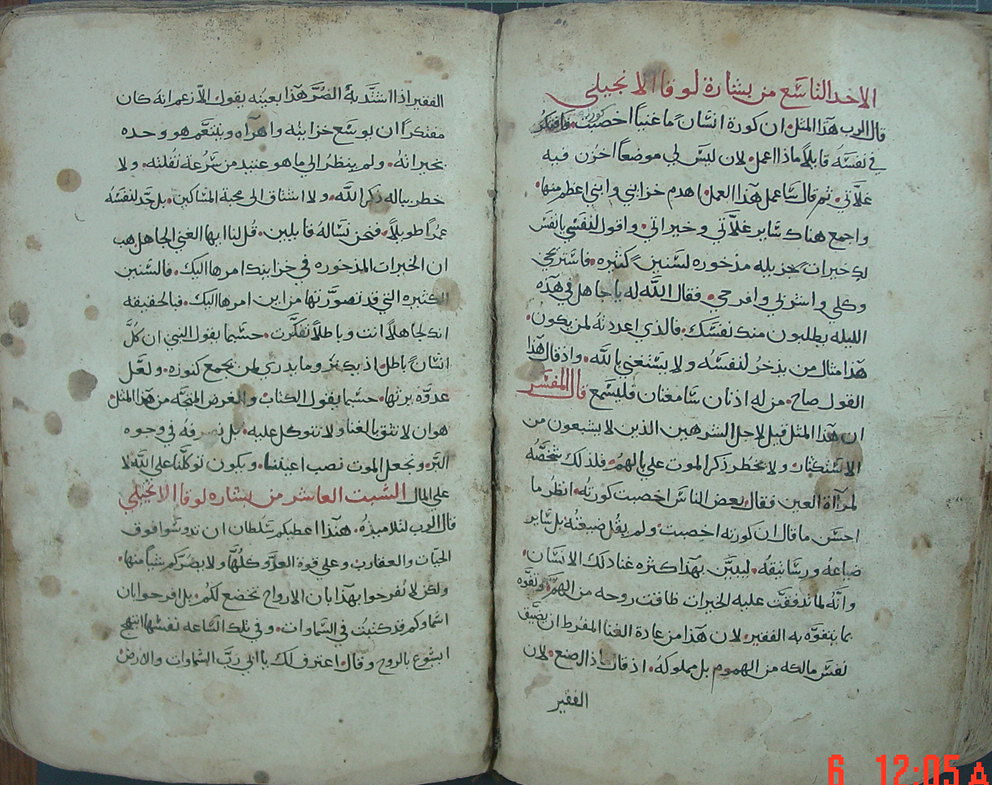 الاحد التاسع من بشارة لوقا الانجيلي
قال الرب هذا المثل، ان كورة انسان ما غنيا اخصبت كورته، فافتكر
في نفسه قايلا ماذا اعمل، لان ليس لي موضعا اخزن فيه
غلاتي، ثم قال سا عمل هذا العمل، اهدم خزايني وابني اعظم منها،
واجمع هناك ساير غلاتي وخيراتي، واقول لنفسي يا نفس
لك خيرات جزيله مذخوره لسنين كثيره، فاستريحي
وكلي واشربي وافرحي، فقال الله له يا جاهل في هذه
الليله يطلبون منك نفسك، فالذي اعددته لمن يكون،
هذا مثال من يذخر لنفسه ولا يستغني بالله، واذ قال هذا
القول صاح، من له اذنان سامعتان فليسمع قال المفسر
ان هذا المثل قيل لاجل الشرهين الذين لا يشبعون من
ولا يخطر ذكر الموت على بالهم، فلذلك شخصه
لمرآة العين فقال بعض الناس اخصبت كورته، انظر ما
احسن ما قال ان كورته اخصبت، ولم يقل ضيعته بل ساير
ضياعه ورساتيقه، ليبين بهذا كثره غنا ذلك الانسان،
وانه لما تدفقت عليه الخيرات ضاقت روحه من الهم، وتفوه
بما يتفوه به الفقير، لان هذا من عادة الغنا المفرط ان يضيق
نفس مالكه من الهموم بل مملوكه، اذ قال ماذا اصنع، لان
الفقير
الفقير اذا اشتد به الضر هذا بعينه يقول، الا زعم انه كان
مفتكرا ان يوسع خزاينه واهراه ويتنعم هو وحده
بخيراته، ولم ينظر الى ما هو عتيد من سرعه نقلته، ولا
خطر بباله ذكر الله، ولا اشتاق الى محبة المساكين، بل حد لنفسه
عمرا طويلا، فنحن نساله قايلين، قل لنا ايها الغني الجاهل هب
ان الخيرات المذخوره في خزاينك امرها اليك، فالسنين
الكثيره التي قد تصورتها من اين امرها اليك، فبالحقيقه
انك جاهلا انت وباطلا تفكرت، حسبما يقول النبي ان كل
انسان باطل، اذ يكنز وما يدري لمن تجمع كنوزه، ولعل
عدوه يرثها، حسبما يقول الكتاب، والغرض المتجه من هذا المثل،
هو ان لا نثق بالغنا ولا نتوكل عليه، بل نصرفه في وجوه
البر، ونجعل الموت نصب اعيننا، ويكون توكلنا على الله لا
على المال السبت العاشر من بشاره لوقا الانجيلي
قال الرب لتلاميذه، هنذا اعطيكم سلطان ان تدوسوا فوق
الحيات والعقارب وعلى قوة العدو كلها، ولا يضركم شيا منها،
ولكن لا تفرحوا بهذا بان الارواح تخضع لكم، بل افرحوا بان
اسماوكم قد كتبت في السماوات، وفي تلك الساعه نفسها ابتهج
ايسوع بالروح وقال، اعترف لك يا ابي رب السماوات والارض
6 12:05 A